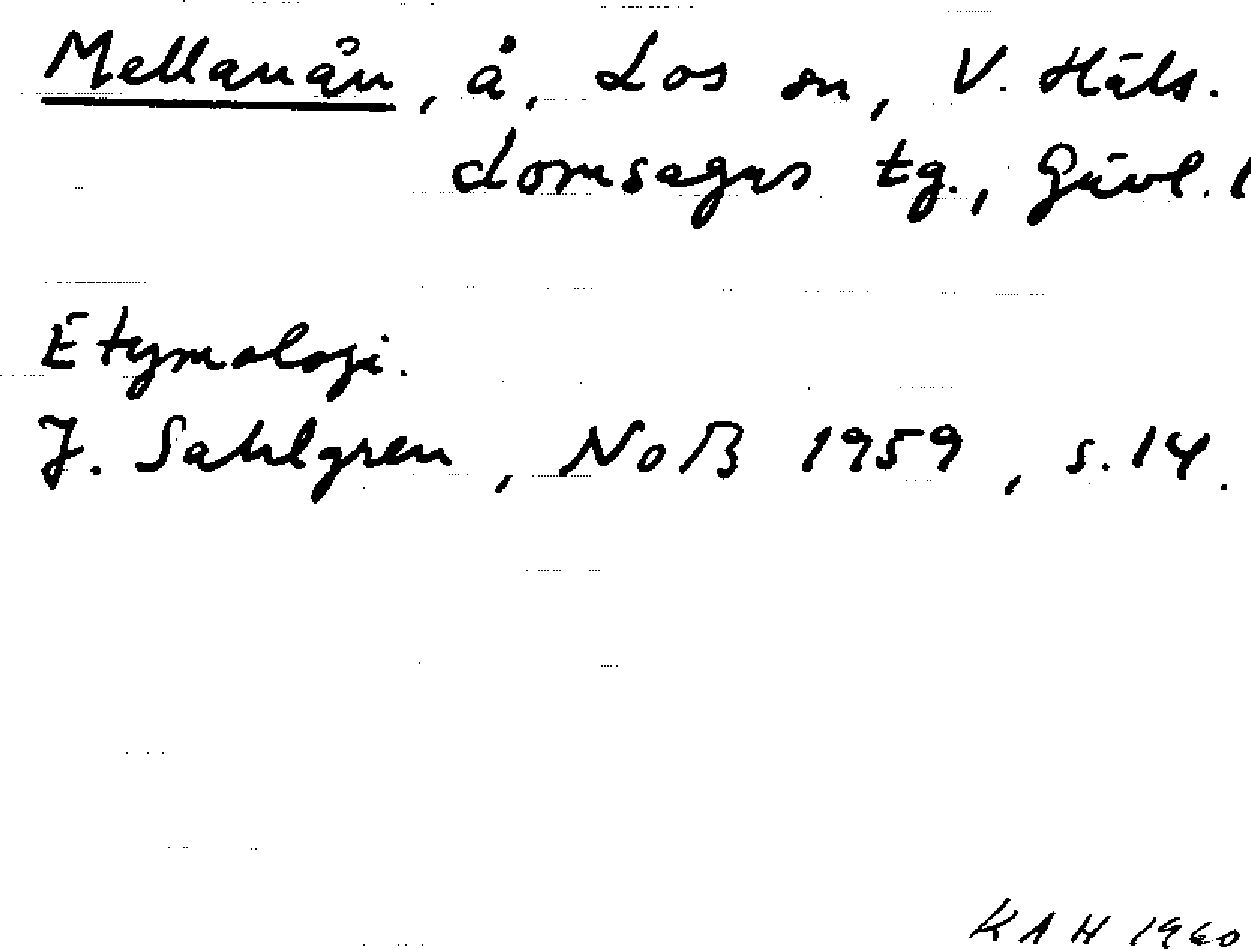 Mellanån, å, Los sn, V. Häls.
domsagas tg., Gävl. l
Etymologi.
J. Sahlgren, NoB 1959, s. 14.
KAH 1960